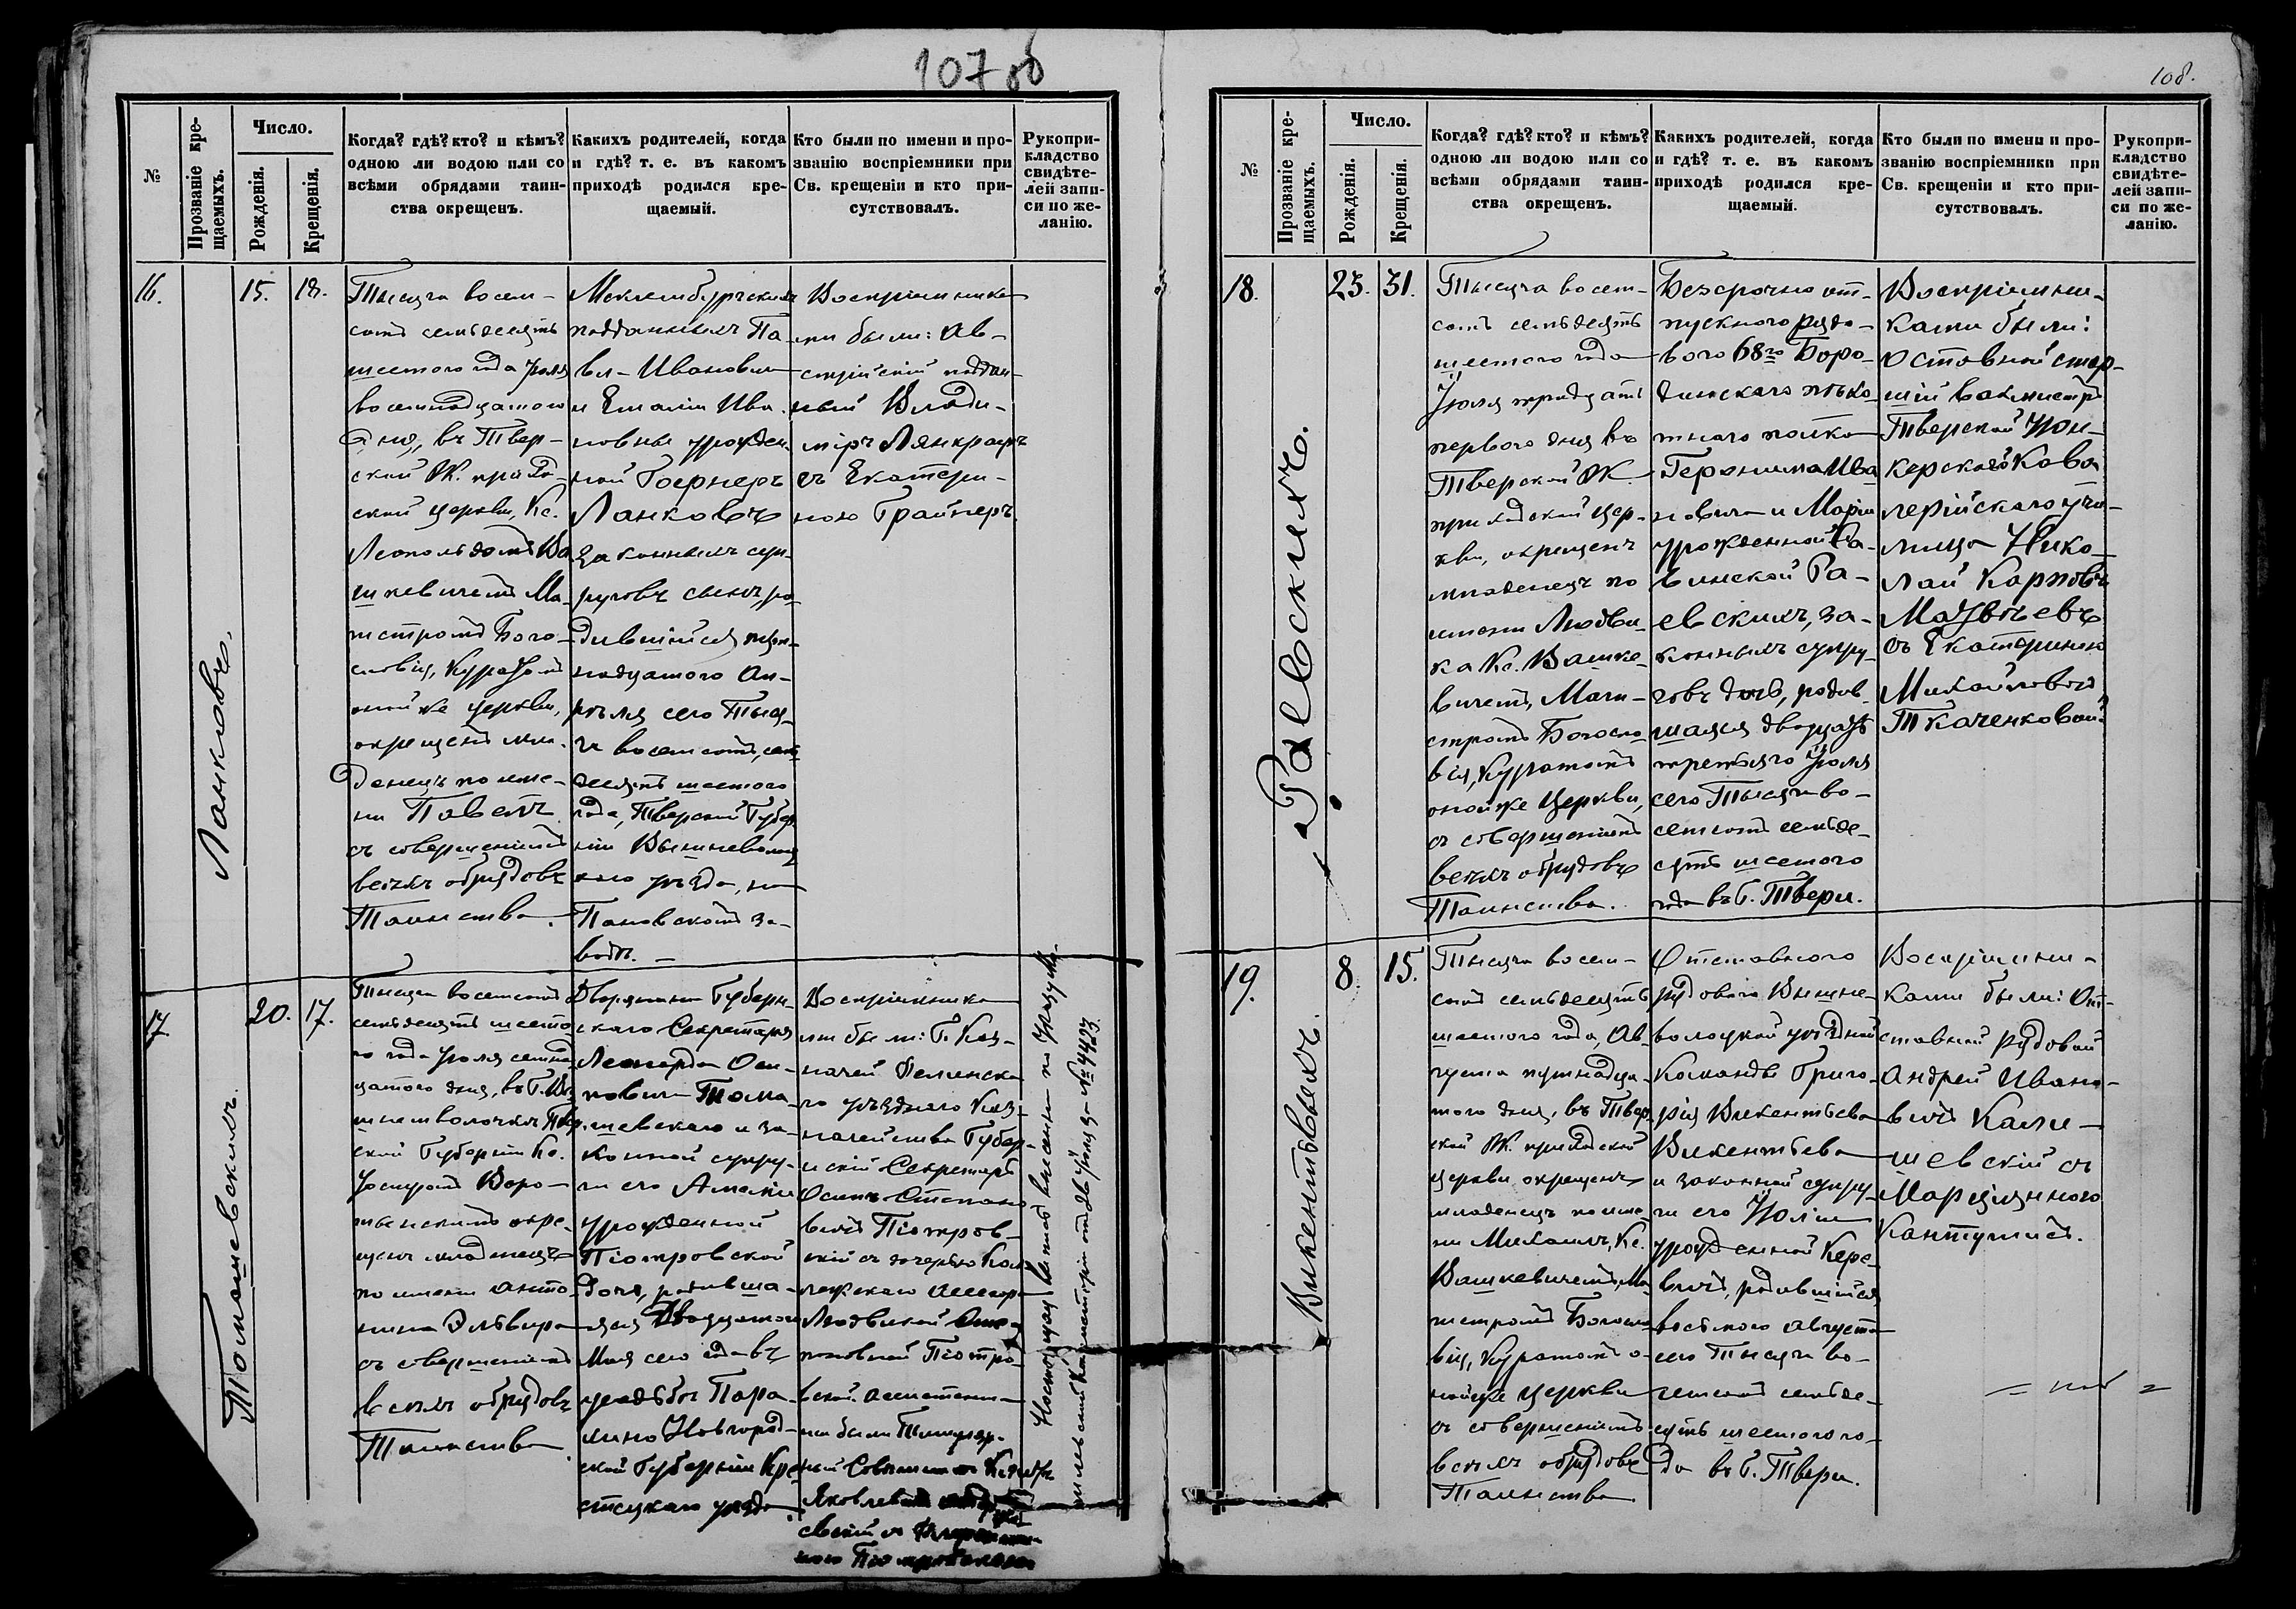 107 об
108.
№
Прозваніе кре-
щаемыхъ.
Число.
Рожденія.
Крещенія.
Когда? гдѣ? кто? и кѣмъ?
одною ли водою или со
всѣми обрядами таин-
ства окрещенъ.
Какихъ родителей, когда
и гдѣ? т. е. въ какомъ
приходѣ родился кре-
щаемый.
Кто были по имени и про-
званію воспріемники при
Св. крещеніи и кто при-
сутствовалъ.
Рукопри-
кладство
свидѣте-
лей запи-
си по же-
ланію.
16.
Ланковъ.
15.
18.
Тысяча восем-
сотъ семьдесятъ
шестого года Іюля
восемнадцатого
дня, въ Твер-
ской РК. приход-
ской церкви, Кс.
Леопольдомъ Ва
шкевичемъ Ма-
гистромъ Бого-
словія, Куратомъ
оной же церкви,
окрещенъ мла-
денецъ по име-
ни Павелъ
съ совершеніемъ
всѣхъ обрядовъ
Таинства.
Мекленбургскихъ
подданныхъ Па-
вла Ивановича
и Емиліи Ива-
новны урожден-
ной Гоернеръ
Ланковъ
законныхъ суп-
руговъ сынъ, ро-
дившійся пят-
надцатого Ап-
рѣля сего Тыся-
ча восемсотъ семь
десятъ шестого
года, Тверской Губер
ніи Вышневолоц
каго уѣзда, на
Пановскомъ за-
водѣ.
Воспріемника
ми были: Ав-
стрійскій поддан-
ный Влади-
міръ Лянкрацъ
съ Екатери-
ною Грайнеръ.
17.
Томашевскихъ.
20.
17.
Тысяча восемсотъ
семьдесятъ шесто-
го года Іюля семнад
цатого дня, въ Г. Вы
шнемъ волочкѣ Твер
ской Губерніи Кс.
окре-
щенъ младенецъ
по имени Анто-
нина Эльвира
съ совершеніемъ
всѣхъ обрядовъ
Таинства.
Дворянина Губерн-
скаго Секретаря
Леонарда Оси-
повича Тома-
шевскаго и за-
конной супру-
ги его Амаліи
урожденной
Піотровской
дочь, родивша-
яся Двадцатого
Мая сего года въ
усадьбѣ Пара-
хино Новгород-
ской Губерніи Кре-
стецкаго уѣзда.
Воспріемника
ми были: Г. Каз-
начей
го уѣзднаго Каз-
начейства Губер-
нскій Секретарь
Осипъ Степано
вичъ Піотров-
скій съ дочерью Кол
лежскаго Ассесора
Людвикой
Піотро-
вской. Ассистента-
ми были Титуляр-
ный Совѣтникъ
Настоящая внесена по Указу Мо-
гилевской Консисторіи отъ Іюня за № 4423.
№
Прозваніе кре-
щаемыхъ.
Число.
Рожденія.
Крещенія.
Когда? гдѣ? кто? и кѣмъ?
одною ли водою или со
всѣми обрядами таин-
ства окрещенъ.
Какихъ родителей, когда
и гдѣ? т. е. въ какомъ
приходѣ родился кре-
щаемый.
Кто были по имени и про-
званію воспріемники при
Св. крещеніи и кто при-
сутствовалъ.
Рукопри-
кладство
свидѣте-
лей запи-
си по же-
ланію.
18.
Раевскихъ.
23.
31.
Тысяча восем-
сотъ семьдесятъ
шестого года
Іюля тридцать
перваго дня въ
Тверской РК.
приходской цер-
кви, окрещенъ
младенецъ по
имени Людви-
ка Кс. Вашке-
вичемъ, Маги-
стромъ Богосло
вія, Куратомъ
оной же Церкви,
съ совершеніемъ
всѣхъ обрядовъ
Таинства.
Безсрочно от-
пускного рядо-
вого 68го Боро-
динскаго пѣхо-
тнаго полка
Геронима Ива
новича и Маріи
урожденной Са-
винской Ра-
евскихъ, за-
конныхъ супру-
говъ дочь, родив
шаяся двадцать
третьяго Іюля
сего Тысяча во-
семсотъ семьде-
сятъ шестого
года въ Г. Твери.
Воспріемни-
ками были:
Отставной стар-
шій вахмистръ
Тверской Юн-
керскаго Кава
лерійскаго учи-
лища Нико-
лай Карповъ
Матвѣевъ
съ Екатериною
Михайловой
Ткаченковой.
19.
Викентьевыхъ.
8.
15.
Тысяча восем-
сотъ семьдесятъ
шестого года, Ав-
густа пятнадца-
того дня, въ Твер
ской РК. приходской
церкви окрещенъ
младенецъ по име-
ни Михаилъ, Кс.
Вашкевичемъ, Ма
гистромъ Богосло
вія, Куратомъ о-
нойже Церкви
съ совершеніемъ
всѣхъ обрядовъ
Таинства
Отставного
рядового Вышне-
волоцкой уѣздной
Команды Григо-
рія Викентьева
Викентьева
и законной супру-
ги его Юліи
урожденной Кере-
вичъ, родившійся
восьмого Августа
сего Тысяча во-
семсотъ семьде-
сятъ шестого го-
да въ Г. Твери.
Воспріемни-
ками были: От-
ставной рядовой
Андрей Ивано-
вичъ Кали-
шевскій съ
Марціянною
Кантумисъ.